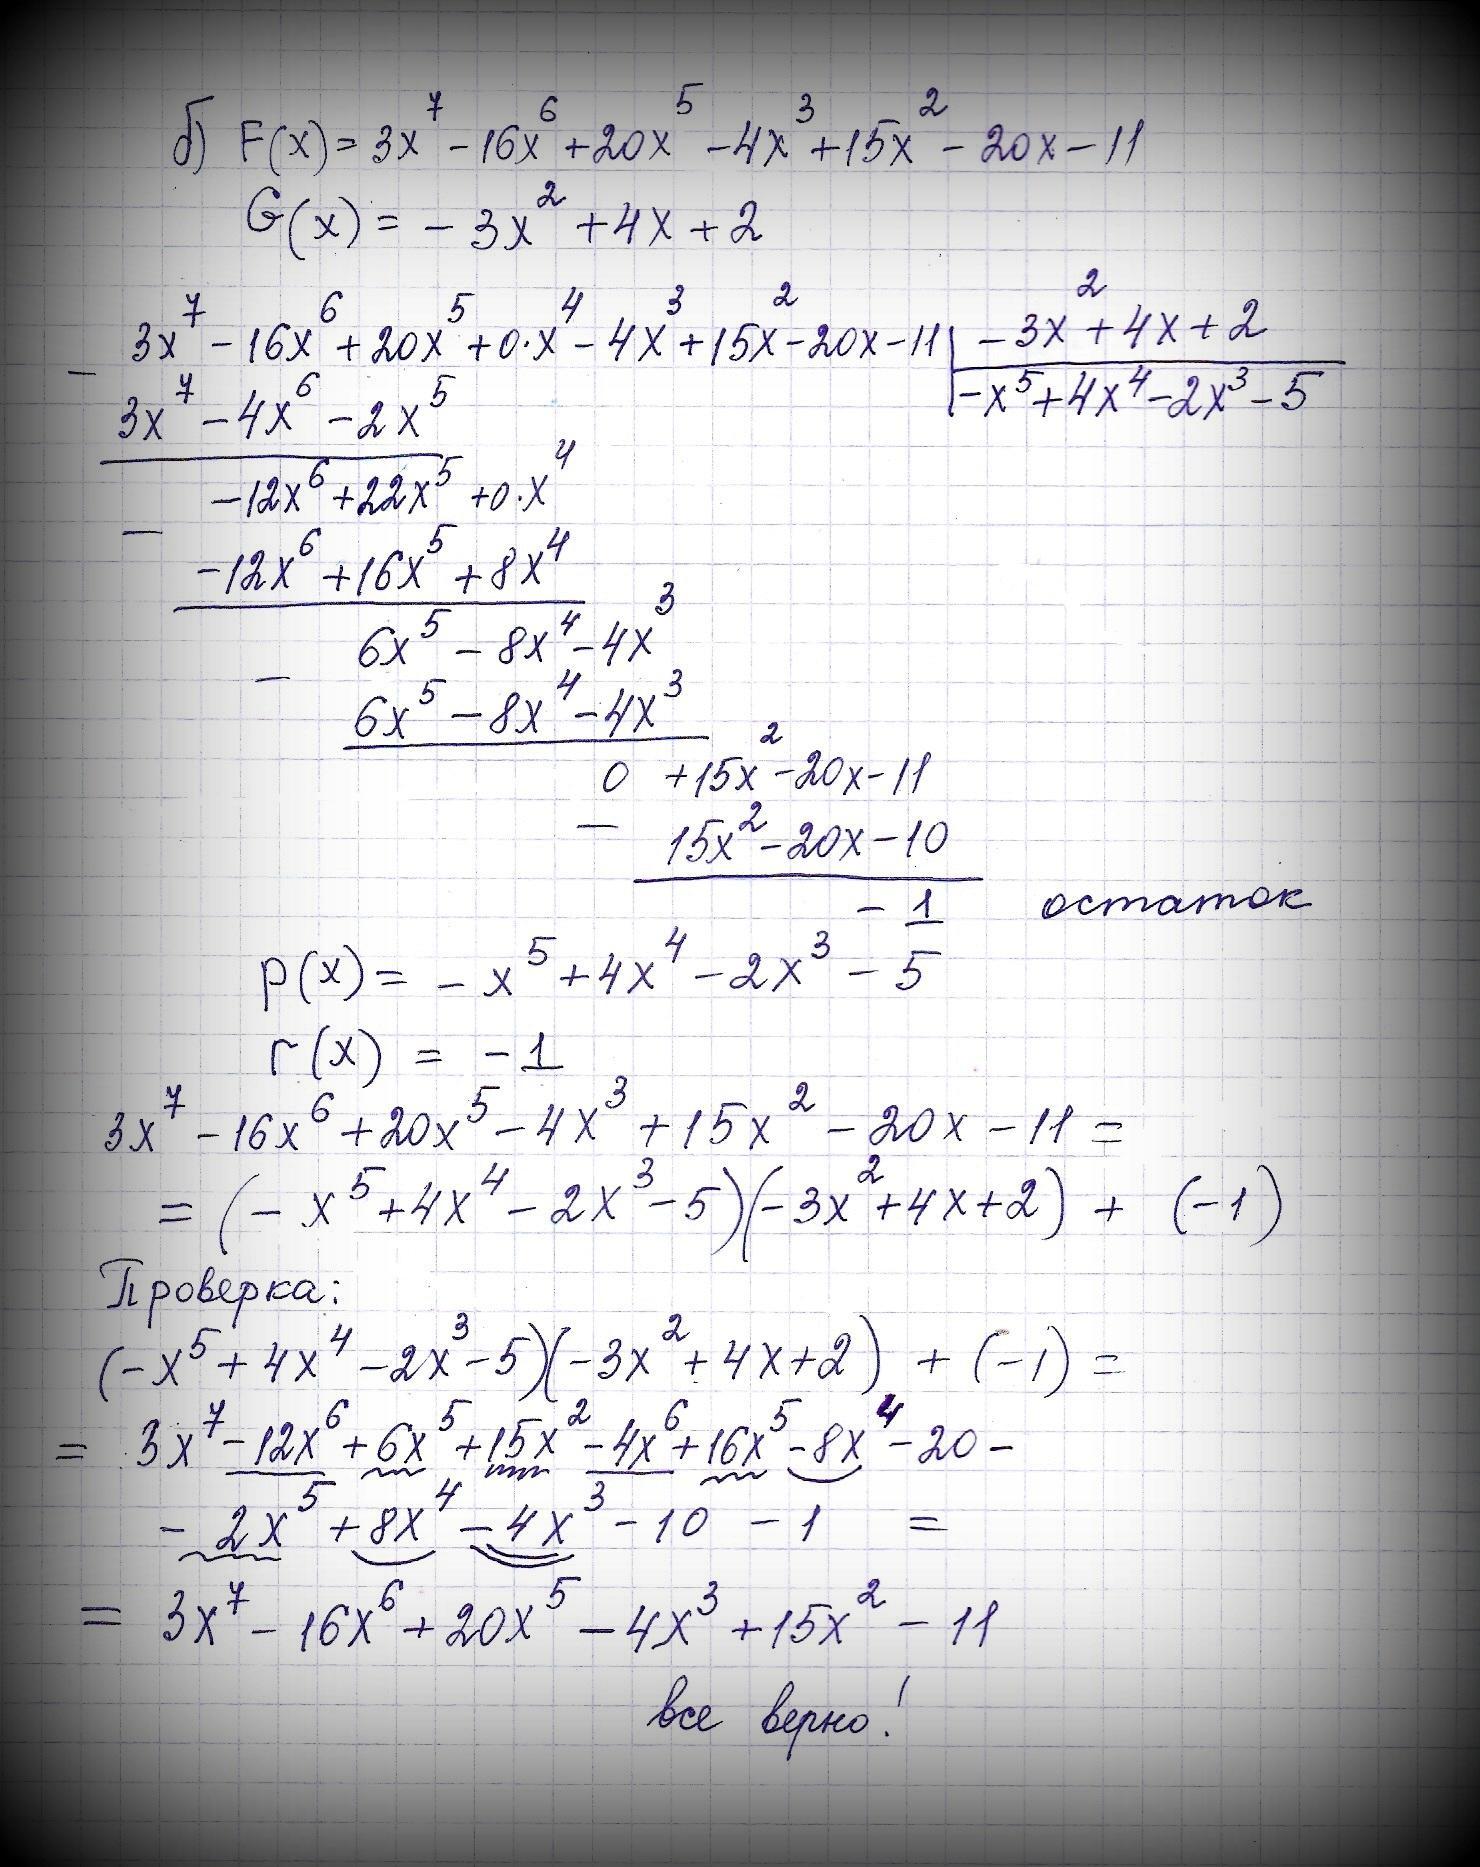 б) F(x) = 3x⁷ - 16x⁶ + 20x⁵ - 4x³ + 15x² - 20x - 11
G(x) = - 3x² + 4x + 2
3x⁷ - 16x⁶ + 20x⁵ + 0·x⁴ - 4x³ + 15x² - 20x - 11 | - 3x² + 4x + 2
- 3x⁷ - 4x⁶ - 2x⁵ | - x⁵ + 4x⁴ - 2x³ - 5
- 12x⁶ + 22x⁵ + 0·x⁴
- - 12x⁶ + 16x⁵ + 8x⁴
6x⁵ - 8x⁴ - 4x³
- 6x⁵ - 8x⁴ - 4x³
0 + 15x² - 20x - 11
- 15x² - 20x - 10
- 1 остаток
p(x) = - x⁵ + 4x⁴ - 2x³ - 5
r(x) = - 1
3x⁷ - 16x⁶ + 20x⁵ - 4x³ + 15x² - 20x - 11 =
= (- x⁵ + 4x⁴ - 2x³ - 5)(- 3x² + 4x + 2) + (-1)
Проверка:
(- x⁵ + 4x⁴ - 2x³ - 5)(- 3x² + 4x + 2) + (-1) =
= 3x⁷ - 12x⁶ + 6x⁵ + 15x² - 4x⁶ + 16x⁵ - 8x⁴ - 20 -
- 2x⁵ + 8x⁴ - 4x³ - 10 - 1 =
= 3x⁷ - 16x⁶ + 20x⁵ - 4x³ + 15x² - 11
все верно!